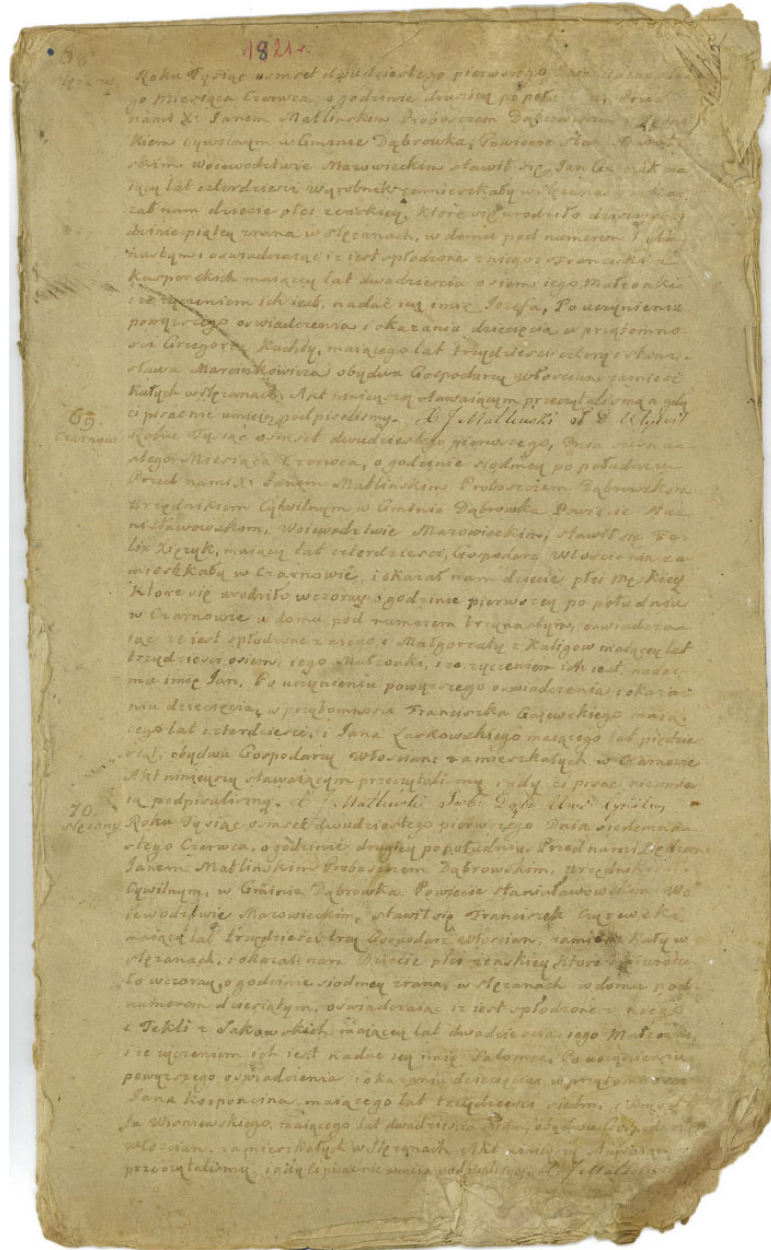 1821 r.
68
Roku Tysiąc osmset dwudziestego pierwszego Dnia
go Miesiąca Czerwca, o godzinie drugiey po połu Przed
nami X. Janem Matlinskim Proboszczem Dąbrowskim
kiem Cywilnym w Gminie Dąbrowka, Powiecie
skim Woiewodztwie Mazowieckim stawił się Jan ma
iący lat czterdzieści wyrobnik zamieszkały w Slęzanach
zał nam dziecie płci zenskiey, ktore się urodziło dzis
dzinie piątey zrana w Slęzanach, w domu pod numerem
nastym oswiadczaiąc iz iest spłodzone z niego i Franciszki z
Kasporskich maiącey lat dwadziescia osiem, iego Małzonki
i ze zyczeniem ich iest nadac iey imie Jozefa, Po uczynieniu
powyzszego oswiadczenia i okazania dziecięcia w przytomno
sci Grzegorza Kuchty, maiącego lat trzydziesci cztery i Stani
sława Marcinkowicza obydwu Gospodarzy Włoscian zamiesz
kałych w Slęzanach, Akt ninieyszy stawaiącym przeczytalismy a gdy
ci pisac nie umieią podpisalismy. X J Matlinski
69.
Czarnow
Roku Tysiąc osmset dwudziestego pierwszego, Dnia
stego Miesiąca Czerwca, o godzinie siodmey po południu
Przed nami X. Janem Matlinskim Proboszczem Dąbrowskim
Urzędnikiem Cywilnym w Gminie Dąbrowka Powiecie Sta
nisławowskim, Woiewodztwie Mazowieckim, stawił się Fe
lix maiący lat czterdziesci, Gospodarz Włoscianin za
mieszkały w Czarnowie, i okazał nam dziecie płci męskiey
Ktore się urodziło wczoray o godzinie pierwszey po południu
w Czarnowie w domu pod numerem trzynastym, oswiadcza
iąc ze iest spłodzone z niego i Małgorzaty z Kuligow maiącey lat
trzydziesci osiem, iego Małzonki, i ze zyczeniem ich iest, nadac
mu imie Jan. Po uczynieniu powyzszego oswiadczenia i okaza
niu dziecięcia, w przytomnosci Franciszka Gajewskiego maią
cego lat czterdziesci, i Jana Laskowskiego maiącego lat piędzie
siąt, obydwu Gospodarzy Włoscian zamieszkałych w Czarnowie
Akt ninieyszy stawaiącym przeczytalismy i gdy ci pisac nie umie
ią podpisalismy. X J Matlinski
70.
Slęzany
Roku Tysiąc osmset dwudziestego pierwszego Dnia siedemna
stego Czerwca, o godzinie drugiey po południu. Przed nami
Janem Matlinskim Proboszczem Dąbrowskim, Urzędnikiem
Cywilnym, w Gminie Dąbrowka Powiecie Stanisławowskim Wo
iewodztwie Mazowieckim, stawił się Franciszek
maiący lat trzydziesci trzy Gospodarz Włoscian, zamieszkały w
Slęzanach, i okazał nam Dziecie płci zenskiey, Ktore się urodzi
ło wczoray, o godzinie siodmey zrana, w Slęzanach w domu pod
numerem dziesiątym, oswiadczaiąc iz iest spłodzone z niego
i Tekli z Sakowskich maiącey lat dwadziescia, iego Małzonki,
i ze zyczeniem ich iest nadac iey imie Salomea, Po uczynieniu
powyzszego oswiadczenia i okazaniu dziecięcia w przytomnosci
Jana maiącego lat trzydziesci siedm, i
ja Wisniewskiego, maiącego lat dwadziescia obydwu Gospodarzy
Włoscian, zamieszkałych w Slęzanach, Akt ninieyszy stawaiącym
przeczytalismy, i gdy ci pisac nie umieią podpisalismy. X J Matlinski